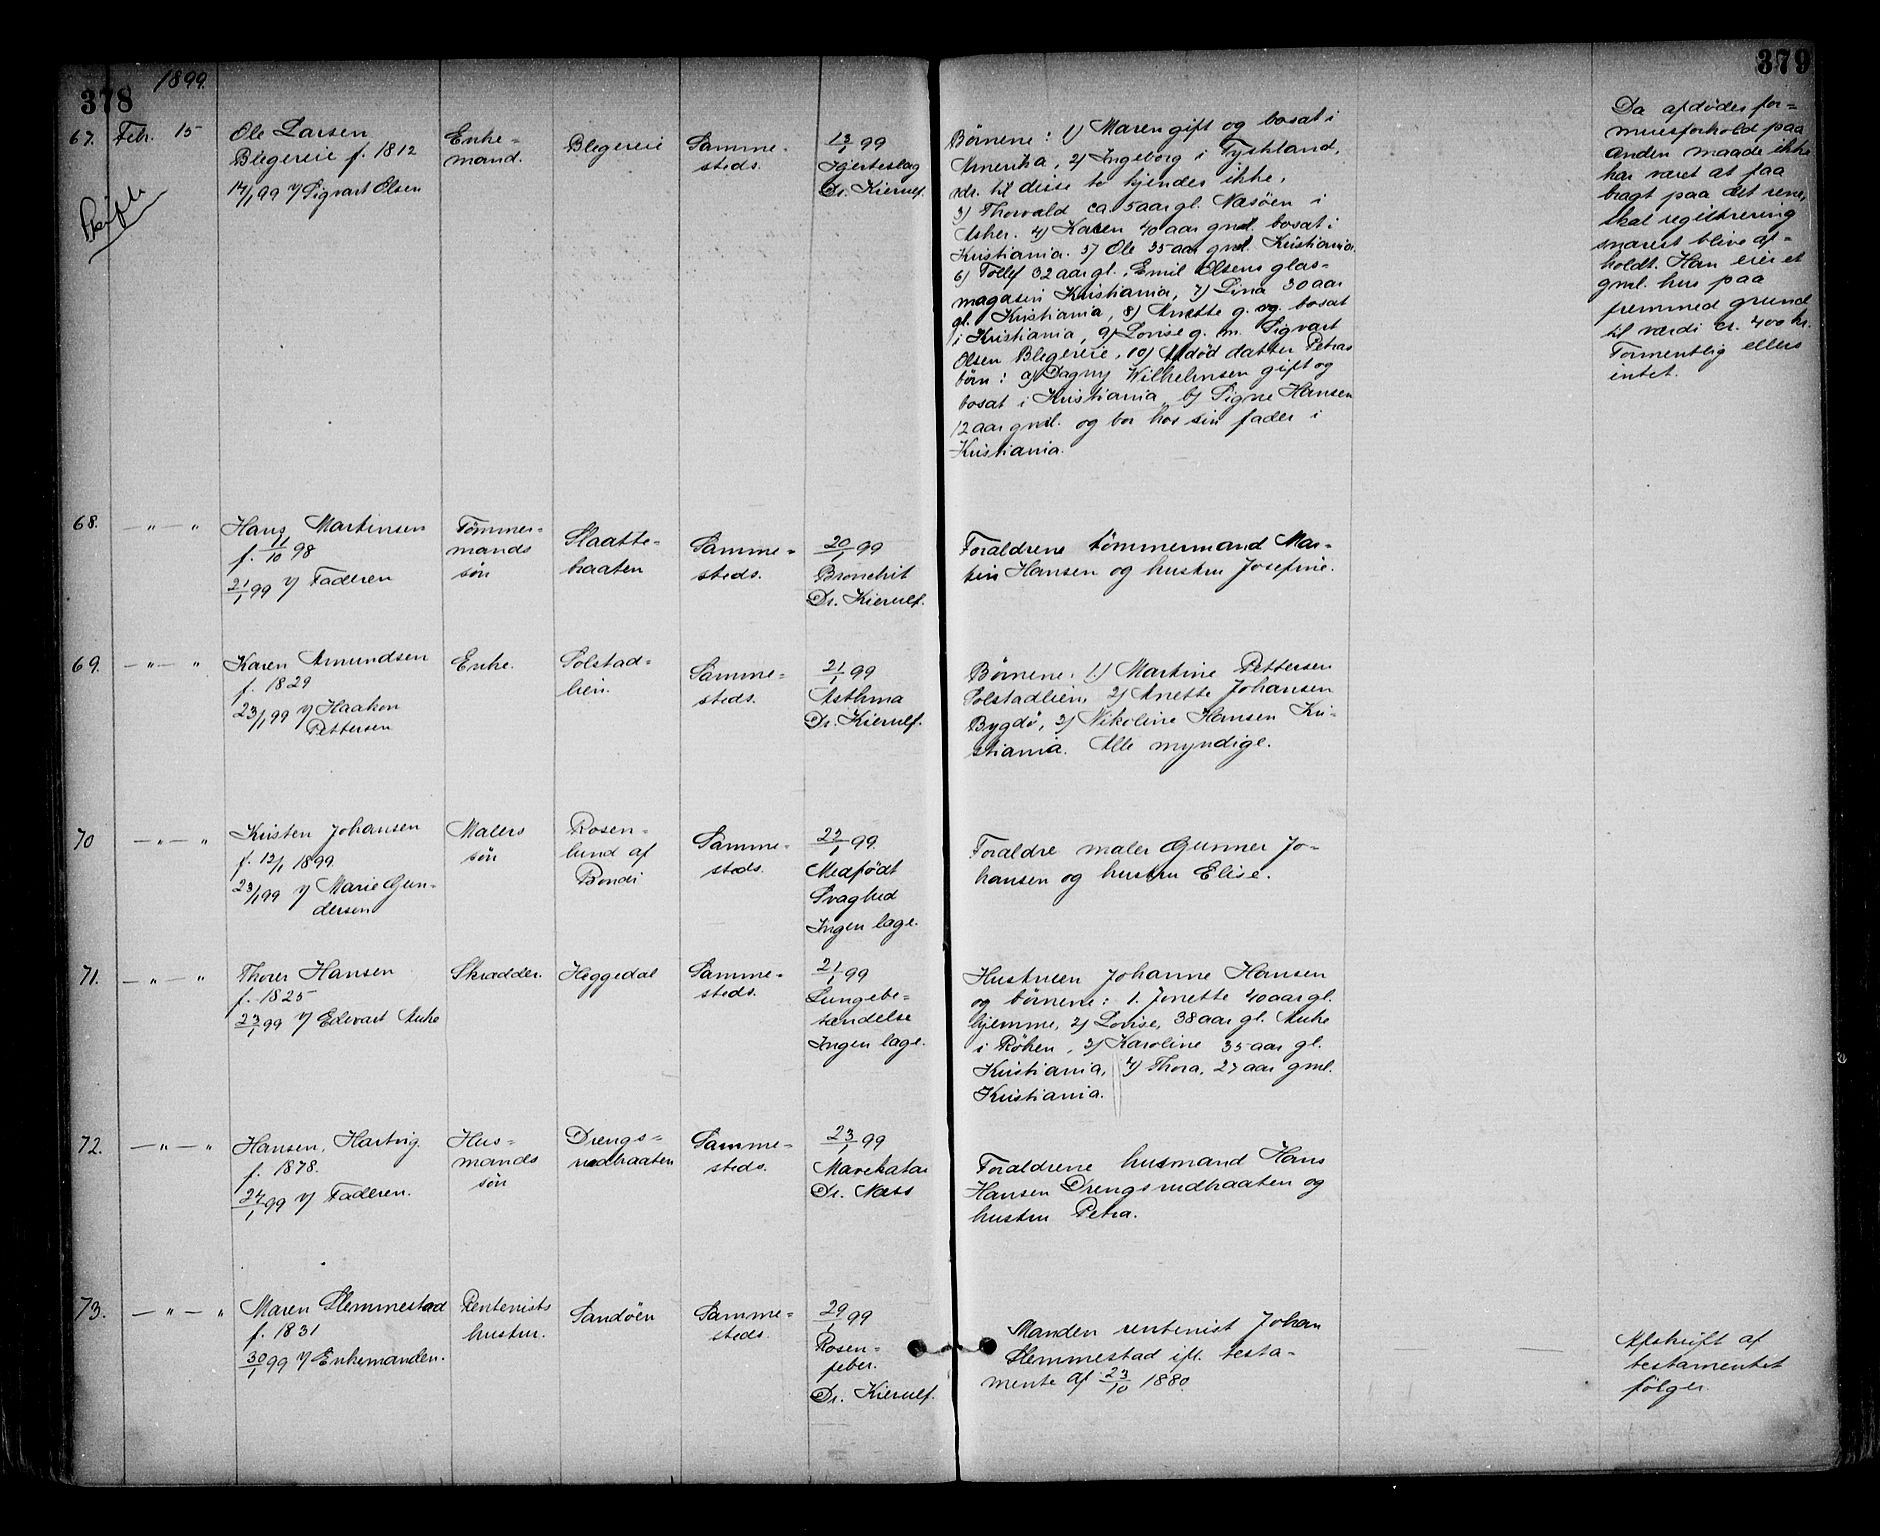 378
1899.
379
67. Febr. 15
Ole Larsen
Blegereie f. 1812
14/1 99 v/ Sigvart Olsen
Skifte
Enke=
mand.
Blegereie
Samme-
steds.
13/1 99
Hjerteslag
Dr. Kierulf.
Børnene: 1) Maren gift og bosat i
Amerika, 2) Ingeborg i Tyskland,
adr. til disse to kjendes ikke,
3) Thorvald ca. 5 aar gl. Næsøen i
Asker. 4) Karen 40 aar gml. bosat i
Kristiania. 5) Ole 35 aar gml. Kristiania.
6) Tollef 32 aar gl., Emil Olsens glas-
magasin Kristiania, 7) Lina 30 aar
gl. Kristiania, 8) Anette g. og bosat
i Kristiania, 9) Lovise g. m. Sigvart
Olsen Blegereie, 10) Afdød datter Petras
børn: a) Dagny Wilhelmsen gift og
bosat i Kristiania, b) Signe Hansen
12 aar gml. og bor hos sin fader i
Kristiania.
Da afdødes for=
muesforhold paa
anden maade ikke
har været at faa
bragt paa det rene,
skal registrering
snarest blive af-
holdt. Han eier et
gml. hus paa
fremmed grund
til værdi cr. 400 kr.
Formentlig ellers
intet.
68. — " — "
Hans Martinsen
f. 11/10 98
21/1 99 v/ Faderen
Tømmer=
mands
søn
Slaatte=
braaten
Samme=
steds.
20/1 99
Bronchit
Dr. Kierulf.
Forældrene tømmermand Mar-
tin Hansen og hustru Josefine.
69. — " — "
Karen Amundsen
f. 1829
23/1 99 v/ Haakon
Pettersen
Enke.
Solstad=
lien.
Samme=
steds.
21/1 99
Asthma
Dr. Kierulf.
Børnene: 1.) Martine Pettersen
Solstadlien, 2) Anette Johansen
Bygdø, 3) Nikoline Hansen Kri-
stiania. Alle myndige.
70 — " — "
Kristen Johansen
f. 12/1 1899.
23/1 99 v/ Marie Gun-
dersen
Malers
søn
Rosen-
lund af
Bondi
Samme=
steds.
22/1 99.
Medfødt
Svaghed
Ingen læge.
Forældre maler Gunner Jo-
hansen og hustru Elise.
71. — " — "
Thorer Hansen
f. 1825
23/1 99 v/ Edevart Auke
Skrædder.
Heggedal
Samme=
steds.
21/1 99
Lungebe=
tændelse
Ingen læge.
Hustruen Johanne Hansen
og børnene: 1. Jonette 40 aar gl.
hjemme, 2) Lovise, 38 aar gl. Auke
i Røken, 3) Karoline 35 aar gl.
Kristiania, 4) Thora, 27 aar gml.
Kristiania.
72. — " — "
Hansen, Hartvig.
f. 1878.
27/1 99 v/ Faderen.
Hus=
mands
søn
Drengs=
rudbraaten
Samme=
steds.
23/1 99
Mavekatar
Dr. Næss
Forældrene husmand Hans
Hansen Drengsrudbraaten og
hustru Petra.
73. — " — "
Maren Slemmestad
f. 1831
30/1 99 v/ Enkemanden.
Rentenists
hustru.
Sandøen
Samme=
steds.
29/1 99
Rosen-
feber.
Dr. Kierulf.
Manden rentenist Johan
Slemmestad ifl. testa-
mente af 23/10 1880.
Afskrift af
testamentet
følger.